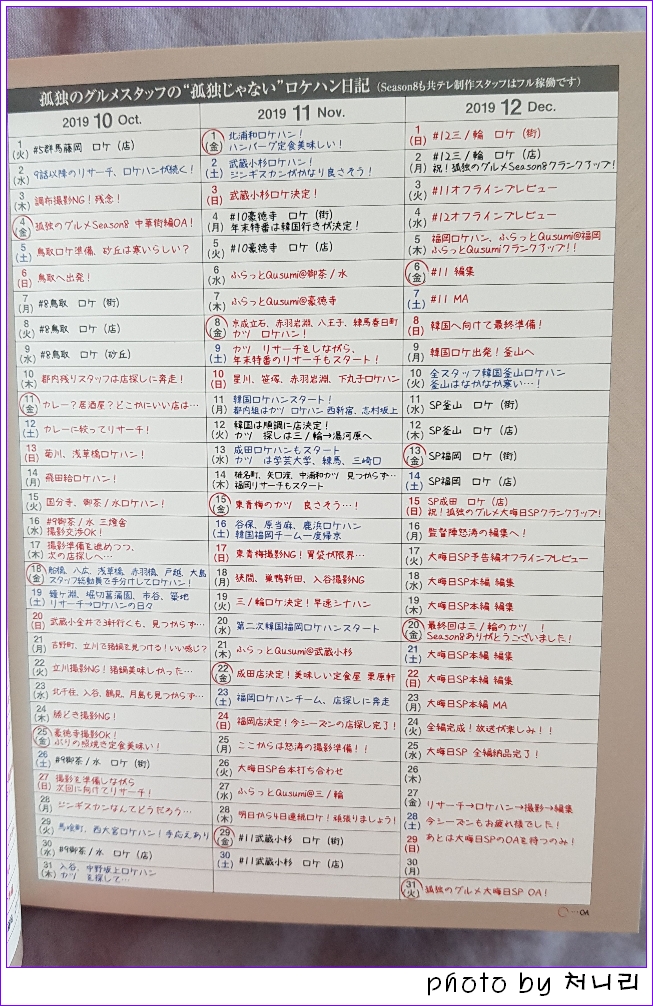 孤独のグルメスタッフの“孤独じゃない”ロケハン日記（Season8も共テレ制作スタッフはフル稼働です）
2019 10 Oct.
1(火) #5群馬藤岡 ロケ（店）
2(水) 9話以降のリサーチ、ロケハンが続く！
3(木) 調布撮影NG！残念！
4(金) 孤独のグルメSeason8 中華街編OA！
5(土) 鳥取ロケ準備、砂丘は寒いらしい？
6(日) 鳥取へ出発！
7(月) #8鳥取 ロケ（街）
8(火) #8鳥取 ロケ（店）
9(水) #8鳥取 ロケ（砂丘）
10(木) 都内残りスタッフは店探しに奔走！
11(金) カレー？居酒屋？どこかにいい店は…
12(土) カレーに絞ってリサーチ！
13(日) 菊川、浅草橋ロケハン！
14(月) 飛田給ロケハン！
15(火) 国分寺、御茶ノ水ロケハン！
16(水) #9御茶ノ水 三燈舎
撮影交渉OK！
17(木) 撮影準備を進めつつ、
次の店探しへ…
18(金) 船橋、八広、浅草橋、赤羽橋、戸越、大島
スタッフ総動員で手分けしてロケハン！
19(土) 鐘ヶ淵、堀切菖蒲園、市谷、築地
リサーチ→ロケハンの日々
20(日) 武蔵小金井で3軒行くも、見つからず…
21(月) 吉野町、立川で猪鍋を見つける！いい感じ？
22(火) 立川撮影NG！猪鍋美味しかった…
23(水) 北千住、入谷、鶴見、月島も見つからず…
24(木) 勝どき撮影NG！
25(金) 豪徳寺撮影OK！
ぶりの照焼き定食美味い！
26(土) #9御茶ノ水 ロケ（街）
27(日) 撮影を準備しながら
次回に向けてリサーチ！
28(月) ジンギスカンなんてどうだろう…
29(火) 馬喰町、西大宮ロケハン！手応えあり
30(水) #9御茶ノ水 ロケ（店）
31(木) 入谷、中野坂上ロケハン
カツ を探して…
2019 11 Nov.
1(金) 北浦和ロケハン！
ハンバーグ定食美味しい！
2(土) 武蔵小杉ロケハン！
ジンギスカンがかなり良さそう！
3(日) 武蔵小杉ロケ決定！
4(月) #10豪徳寺 ロケ（街）
年末特番は韓国行きが決定！
5(火) #10豪徳寺 ロケ（店）
6(水) ふらっとQusumi@御茶ノ水
7(木) ふらっとQusumi@豪徳寺
8(金) 京成立石、赤羽岩淵、八王子、練馬春日町
カツ ロケハン！
9(土) カツ リサーチをしながら、
年末特番のリサーチもスタート！
10(日) 星川、笹塚、赤羽岩淵、下丸子ロケハン
11(月) 韓国ロケハンスタート！
都内組はカツ ロケハン 西新宿、志村坂上
12(火) 韓国は順調に店決定！
カツ 探しは三ノ輪→湯河原へ
13(水) 成田ロケハンもスタート
カツ は学芸大学、練馬、三崎口
14(木) 椎名町、矢口渡、中浦和カツ 見つからず…
福岡リサーチもスタート
15(金) 東青梅のカツ 良さそう…！
16(土) 谷保、原当麻、鹿浜ロケハン
韓国福岡チーム一度帰京
17(日) 東青梅撮影NG！胃袋が限界…
18(月) 狭間、巣鴨新田、入谷撮影NG
19(火) 三ノ輪ロケ決定！早速シナハン
20(水) 第二次韓国福岡ロケハンスタート
21(木) ふらっとQusumi@武蔵小杉
22(金) 成田店決定！美味しい定食屋 栗原軒
23(土) 福岡ロケハンチーム、店探しに奔走
24(日) 福岡店決定！今シーズンの店探し完了！
25(月) ここからは怒涛の撮影準備！！
26(火) 大晦日SP台本打ち合わせ
27(水) ふらっとQusumi@三ノ輪
28(木) 明日から4日連続ロケ！頑張りましょう！
29(金) #11武蔵小杉 ロケ（街）
30(土) #11武蔵小杉 ロケ（店）
2019 12 Dec.
1(日) #12三ノ輪 ロケ（街）
2(月) #12三ノ輪 ロケ（店）
祝！孤独のグルメSeason8クランクアップ！
3(火) #11オフラインプレビュー
4(水) #12オフラインプレビュー
5(木) 福岡ロケハン、ふらっとQusumi@福岡
ふらっとQusumiクランクアップ！！
6(金) #11 編集
7(土) #11 MA
8(日) 韓国へ向けて最終準備！
9(月) 韓国ロケ出発！釜山へ
10(火) 全スタッフ韓国釜山ロケハン
釜山はなかなか寒い…！
11(水) SP釜山 ロケ（街）
12(木) SP釜山 ロケ（店）
13(金) SP福岡 ロケ（街）
14(土) SP福岡 ロケ（店）
15(日) SP成田 ロケ（店）
祝！孤独のグルメ大晦日SPクランクアップ！
16(月) 監督陣怒涛の編集へ！
17(火) 大晦日SP予告編オフラインプレビュー
18(水) 大晦日SP本編 編集
19(木) 大晦日SP本編 編集
20(金) 最終回は三ノ輪のカツ ！
Season8ありがとうございました！
21(土) 大晦日SP本編 編集
22(日) 大晦日SP本編 編集
23(月) 大晦日SP本編 MA
24(火) 全編完成！放送が楽しみ！！
25(水) 大晦日SP 全編納品完了！
26(木)
27(金) リサーチ→ロケハン→撮影→編集
28(土) 今シーズンもお疲れ様でした！
29(日) あとは大晦日SPのOAを待つのみ！
30(月)
31(火) 孤独のグルメ大晦日SP OA！
○…OA
photo by 처니리